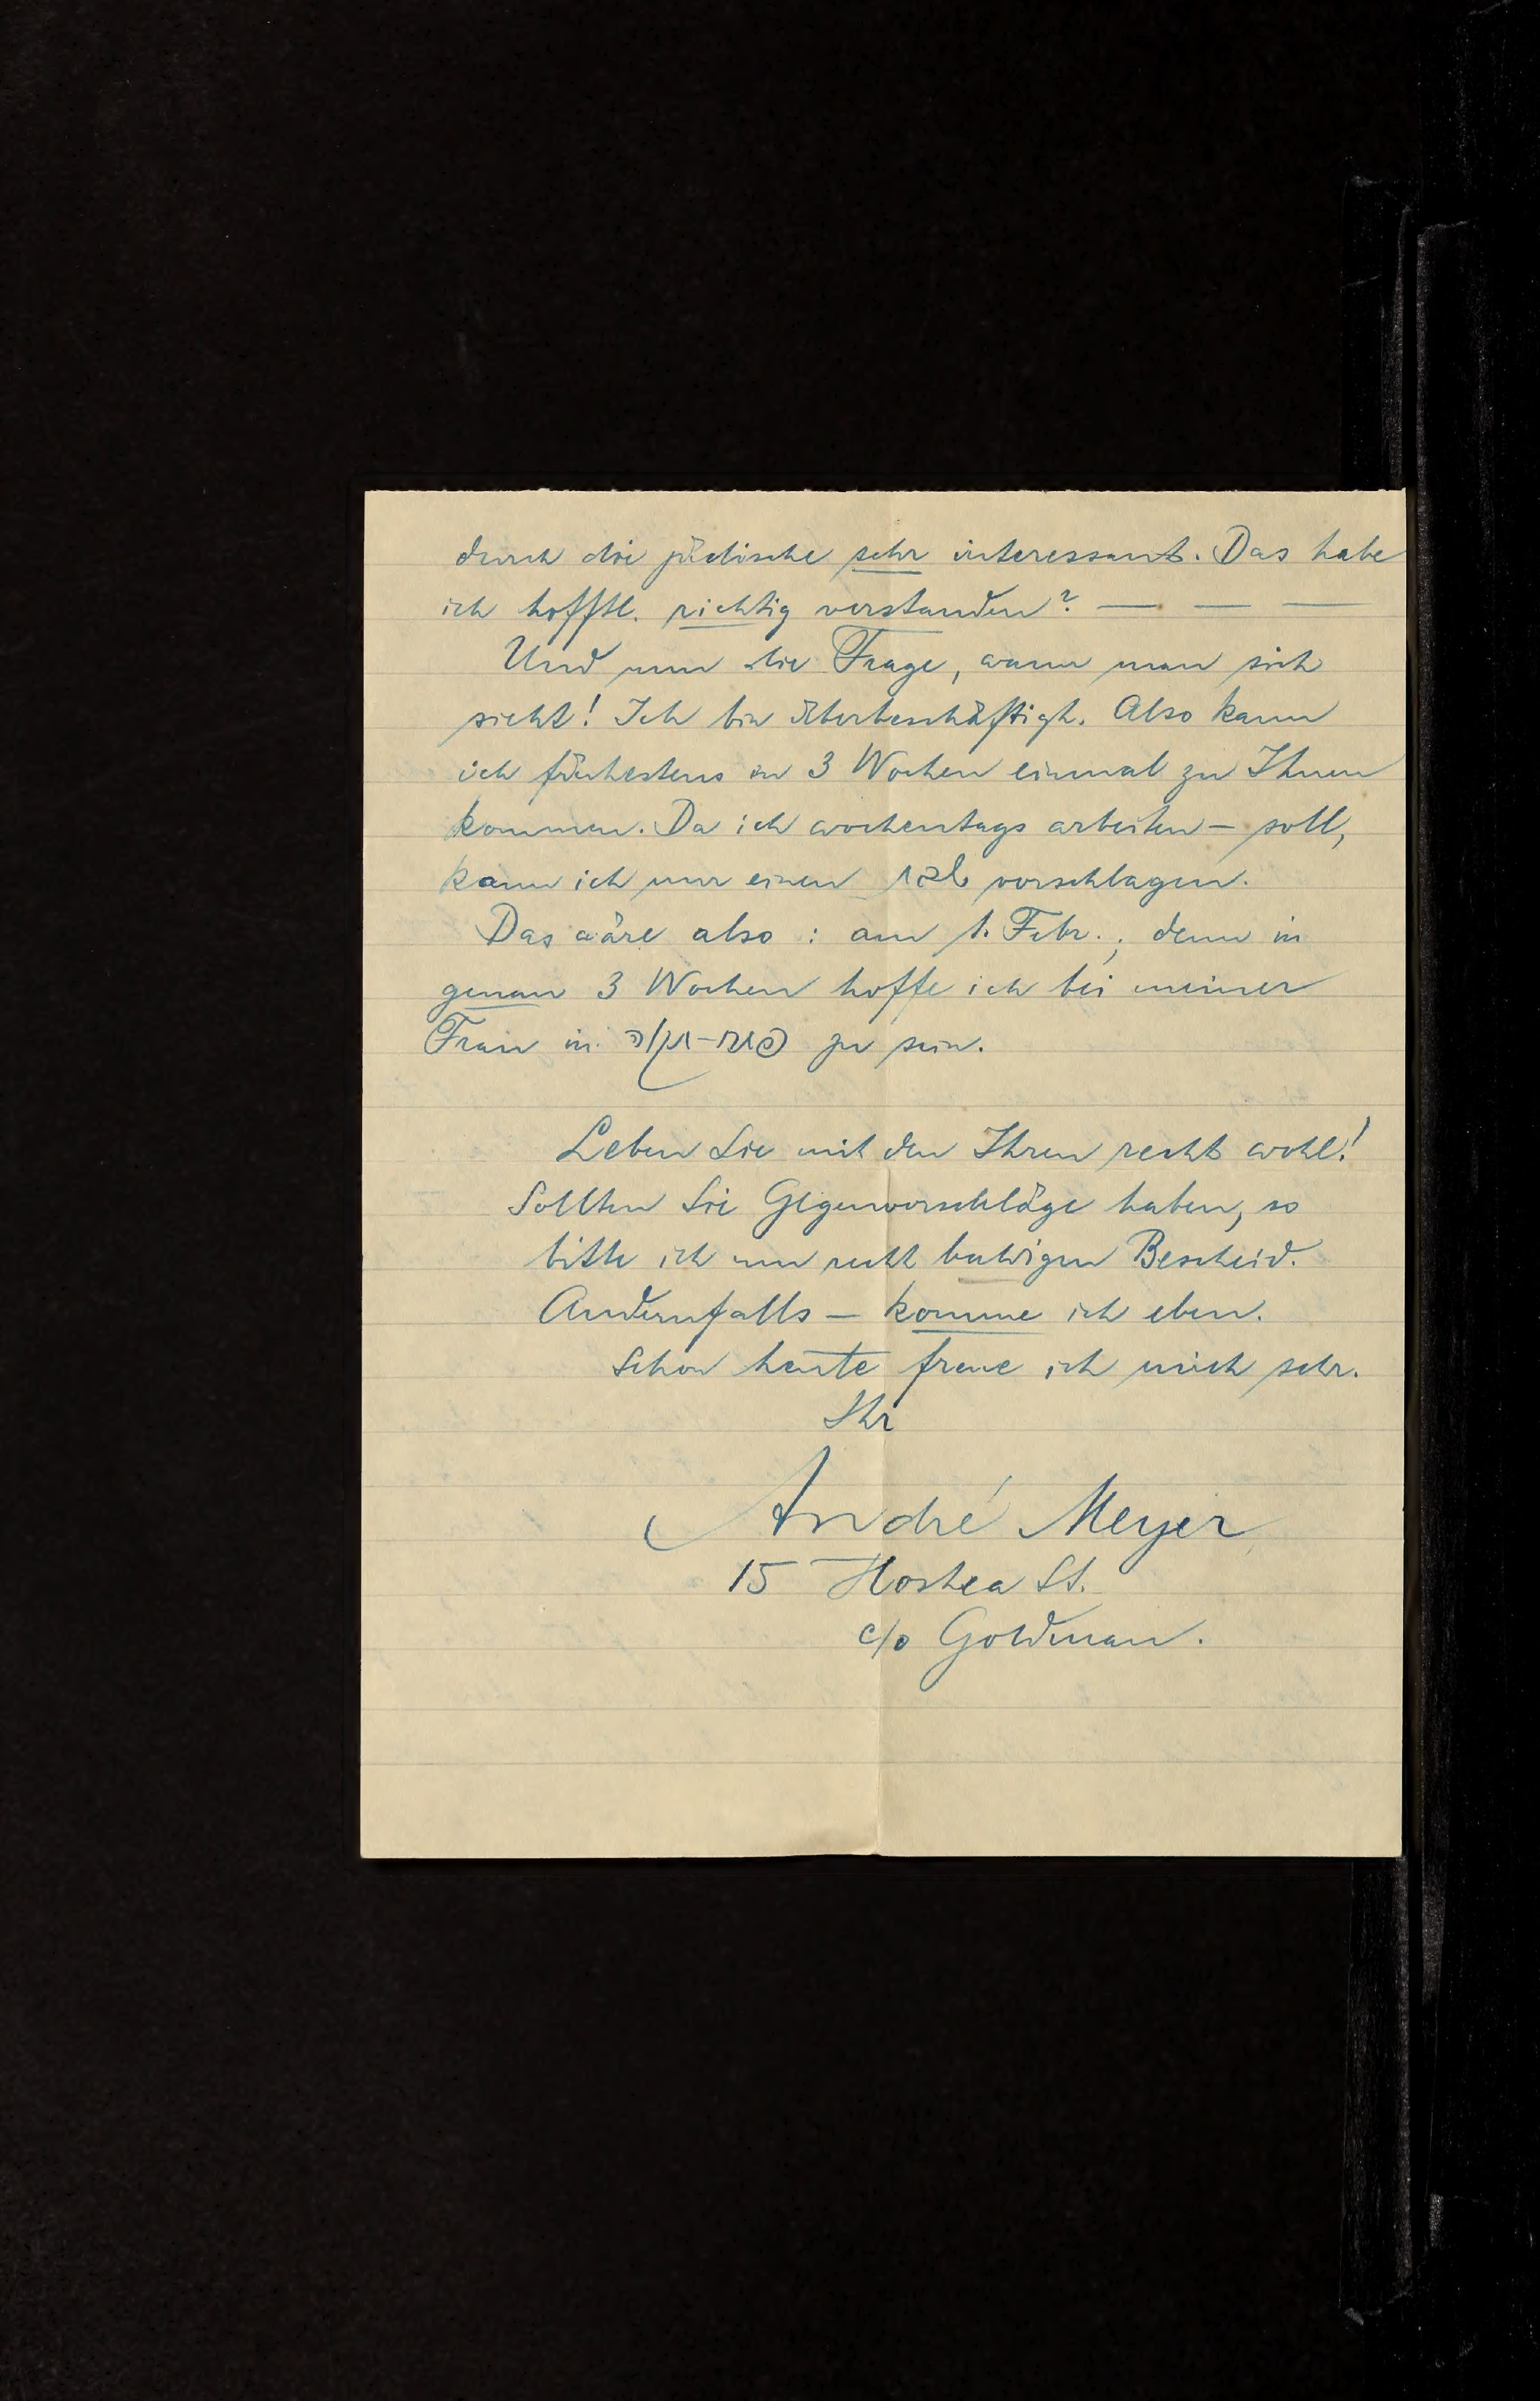 durch die jüdische sehr interessant. Das habe
ich hofftl. richtig verstanden? — — —
Und nun die Frage, wann man sich
sieht! Ich bin überbeschäftigt. Also kann
ich frühestens in 3 Wochen einmal zu Ihnen
kommen. Da ich wochentags arbeiten – soll,
kann ich nur einen שבת vorschlagen.
Das wäre also : am 1. Febr.; denn in
genau 3 Wochen hoffe ich bei meiner
Frau in פתח-תקוה zu sein.
Leben Sie mit den Ihren recht wohl!
Sollten Sie Gegenvorschläge haben, so
bitte ich um recht baldigen Bescheid.
Andernfalls – komme ich eben.
Schon heute freue ich mich sehr.
Ihr
André Meyer
15 Hoshea St.
c/o Goldman.